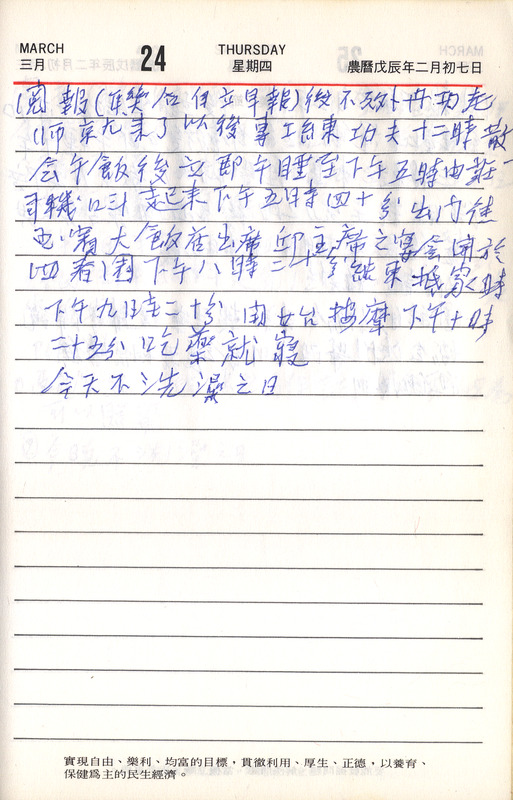 MARCH 24 THURSDAY
三月 星期四 農曆戊辰年二月初七日
報(聯合自立早報)後不效外丹功
師 來了以後專工結束功夫十二時散
会午飯後立即午睡至下午五時由莊
司機口斗起來下午五時四十分出门往
大飯店出席邱主席之宴会開於
四春園下午八時二十分結束抵家時
下午九時二十分由女台按摩下午十時
二十五分吃藥就寢
今天不洗澡之日
實現自由、樂利、均富的目標，貫徹利用、厚生、正德，以養育、
保健爲主的民生經濟。